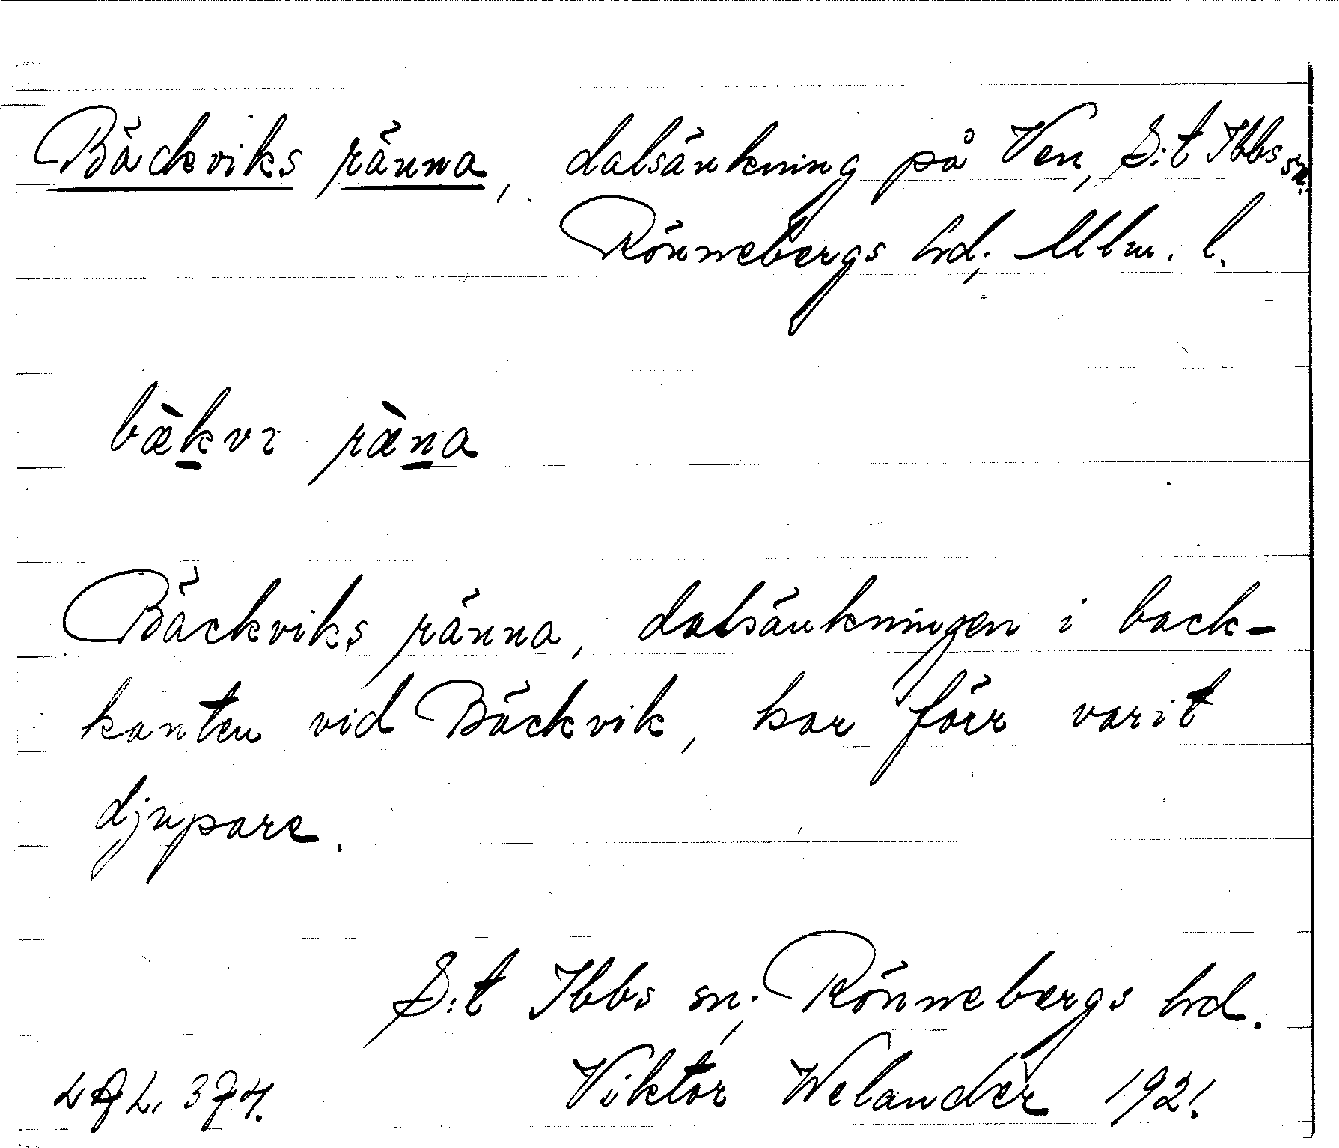 Bäckviks ränna, dalsänkning på Ven, S:t Ibbs sn.
Rönnebergs hd; Mlm. l.
bæ̀kvı ræ̀na
Bäckviks ränna, dalsänkningen i back-
kanten vid Bäckvik, har förr varit
djupare.
S:t Ibbs sn; Rönnebergs hd.
Viktor Welander 1921.